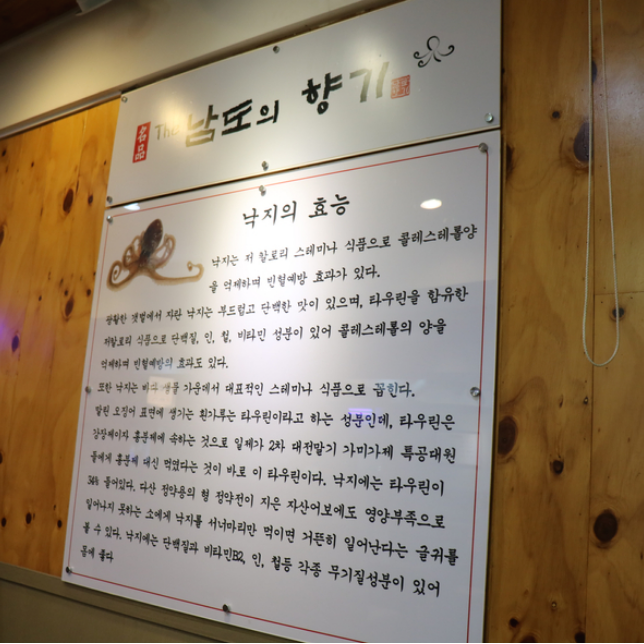 名品 The 남도의 향기
낙지의 효능
낙지는 저 칼로리 스테미나 식품으로 콜레스테롤양
을 억제하며 빈혈예방 효과가 있다.
광활한 갯벌에서 자란 낙지는 부드럽고 단백한 맛이 있으며, 타우린을 함유한
저칼로리 식품으로 단백질, 인, 철, 비타민 성분이 있어 콜레스테롤의 양을
억제하며 빈혈예방의 효과도 있다.
또한 낙지는 바다 생물 가운데서 대표적인 스테미나 식품으로 꼽힌다.
말린 오징어 표면에 생기는 흰가루는 타우린이라고 하는 성분인데, 타우린은
강장제이자 흥분제에 속하는 것으로 일제가 2차 대전말기 가미가제 특공대원
들에게 흥분제 대신 먹였다는 것이 바로 이 타우린이다. 낙지에는 타우린이
34% 들어있다. 다산 정약용의 형 정약전이 지은 자산어보에도 영양부족으로
일어나지 못하는 소에게 낙지를 서너마리만 먹이면 거뜬히 일어난다는 글귀를
볼 수 있다. 낙지에는 단백질과 비타민B2, 인, 철등 각종 무기질성분이 있어
몸에 좋다